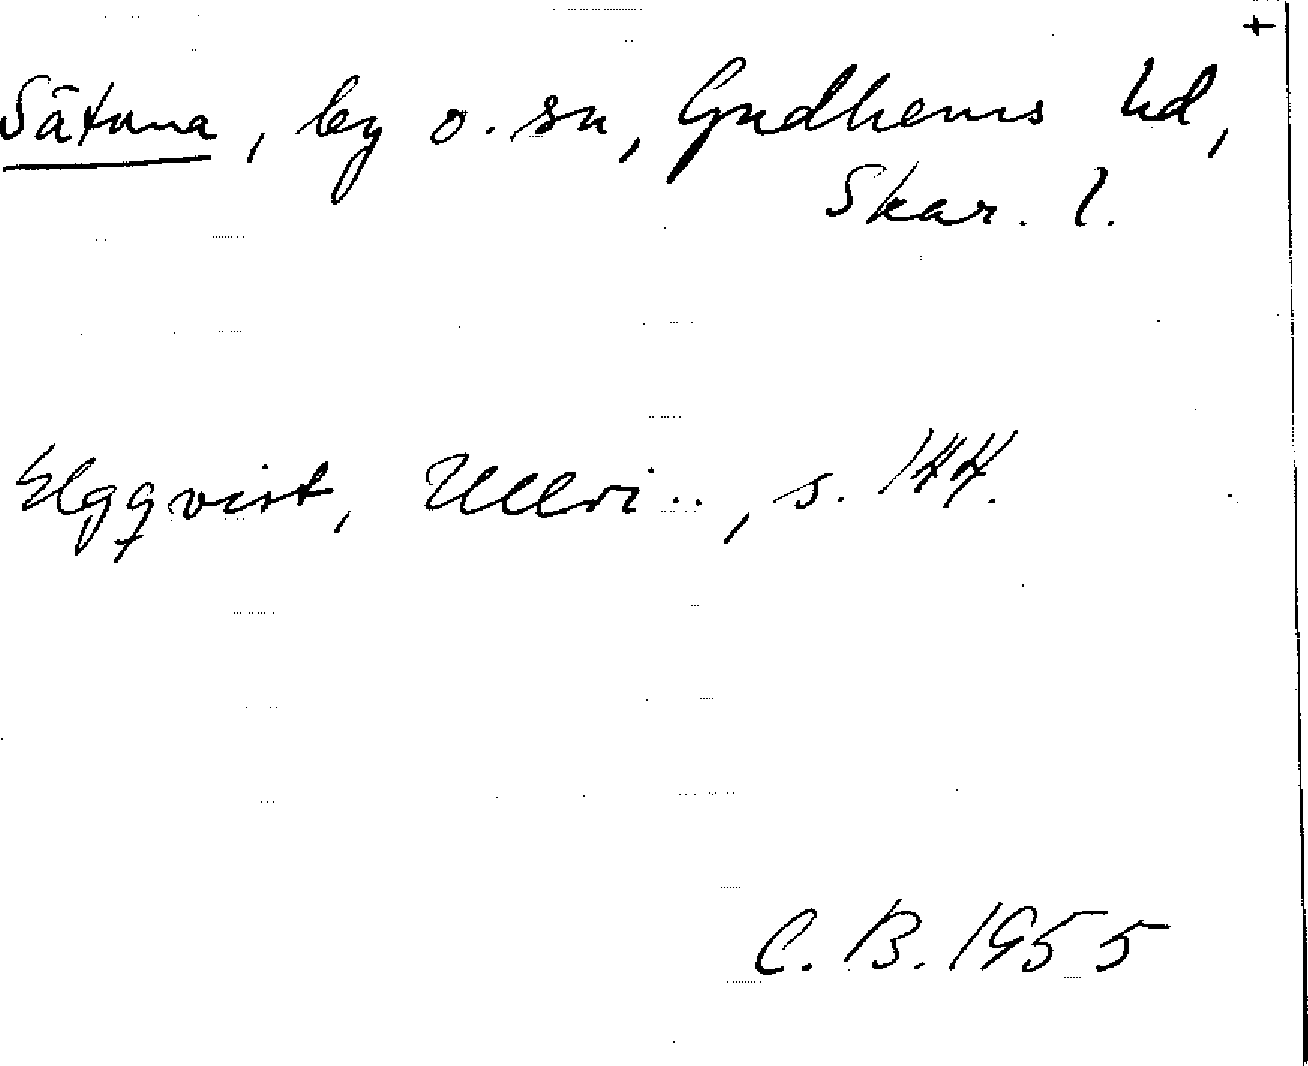 +
Sätuna, by o. sn, Gudhems hd,
Skar. l.
Elgqvist, Ullvi.., s. 144.
C. B. 1955